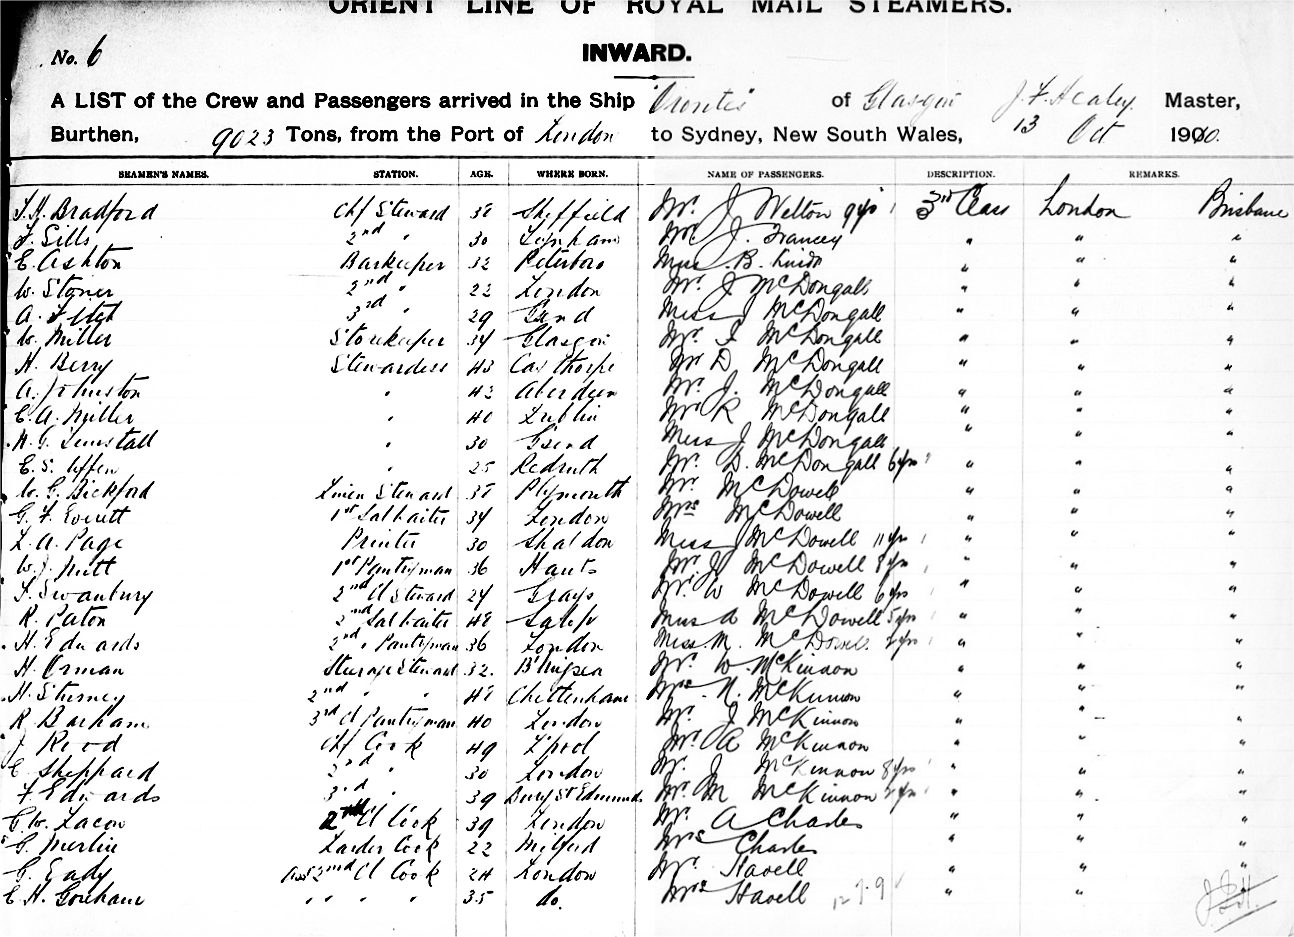 ORIENT LINE OF ROYAL MAIL STEAMERS.
No. 6
INWARD.
A LIST of the Crew and Passengers arrived in the Ship Orontes of Glasgow J. F. Healey Master,
Burthen, 9023 Tons, from the Port of London to Sydney, New South Wales, 13 Oct 1910.
SEAMEN'S NAMES. STATION. AGE. WHERE BORN. NAME OF PASSENGERS. DESCRIPTION. REMARKS.
Bradford Chf Steward Sheffield Mr. J Welton 9 yrs 3rd Class London Brisbane
F. Sills 2nd " 30 Mr J. Francey " " "
E. Ashton Barkeeper 32 Peterboro Miss B. " " "
W. Stoner 2nd " 22 London Mr. J McDongall " " "
A. 3rd " 29 Miss J McDongall " " "
W. Miller Storekeeper 34 Glasgow Mr. McDongall " " "
H. Berry Stewardess 43 Mr D McDongall " " "
A. Johnston " 42 Aberdeen Mr. J. McDongall " " "
E. A. Miller " 40 Dublin Mr R McDongall " " "
" 30 Miss J McDongall " "
E. S. " 25 Redruth Mr. D. McDongall 6 yrs " " "
W. G. Bickford Linen Steward Plymouth Mr. McDowell " " "
G. F. Everett 1st 34 London Mrs McDowell " " "
L. A. Page Printer 30 Shaldon Miss J McDowell 11 yrs " " "
W. J. 1st Pantryman 36 Hants Mr. McDowell 8 yrs " " "
F. Swanbury 2nd Cl Steward 24 Grays Mr. W McDowell 6 yrs " " "
R. Paton 2nd 48 Miss A McDowell 5 yrs " " "
H. Edwards 2nd " Pantryman 36 London Miss M. McDowell " " "
H. Orman Steerage Steward 32. Mr. W. McKinnon " " "
H. 2nd " " 48 Cheltenham Mrs. N. McKinnon " " "
R Barham 3rd Cl Pantryman 40 London Mr. J McKinnon " " "
J. Chf Cook 49 L'pool Mr. A McKinnon " " "
E. Sheppard 2nd " 30 London Mr. J McKinnon 8 yrs " " "
F Edwards 3rd " 39 Bury St Edmunds Mr. M McKinnon " " "
C. W. Lacon 2nd Cl Cook 39 London Mr. A Charles " " "
G. Larder Cook 22 Milford Mrs Charles " " "
G. Eady Ass 2nd Cl Cook 24 London Mr. Havell " " "
E H. Goreham " " " " 35 do. Mrs Havell " "
J.F.H.